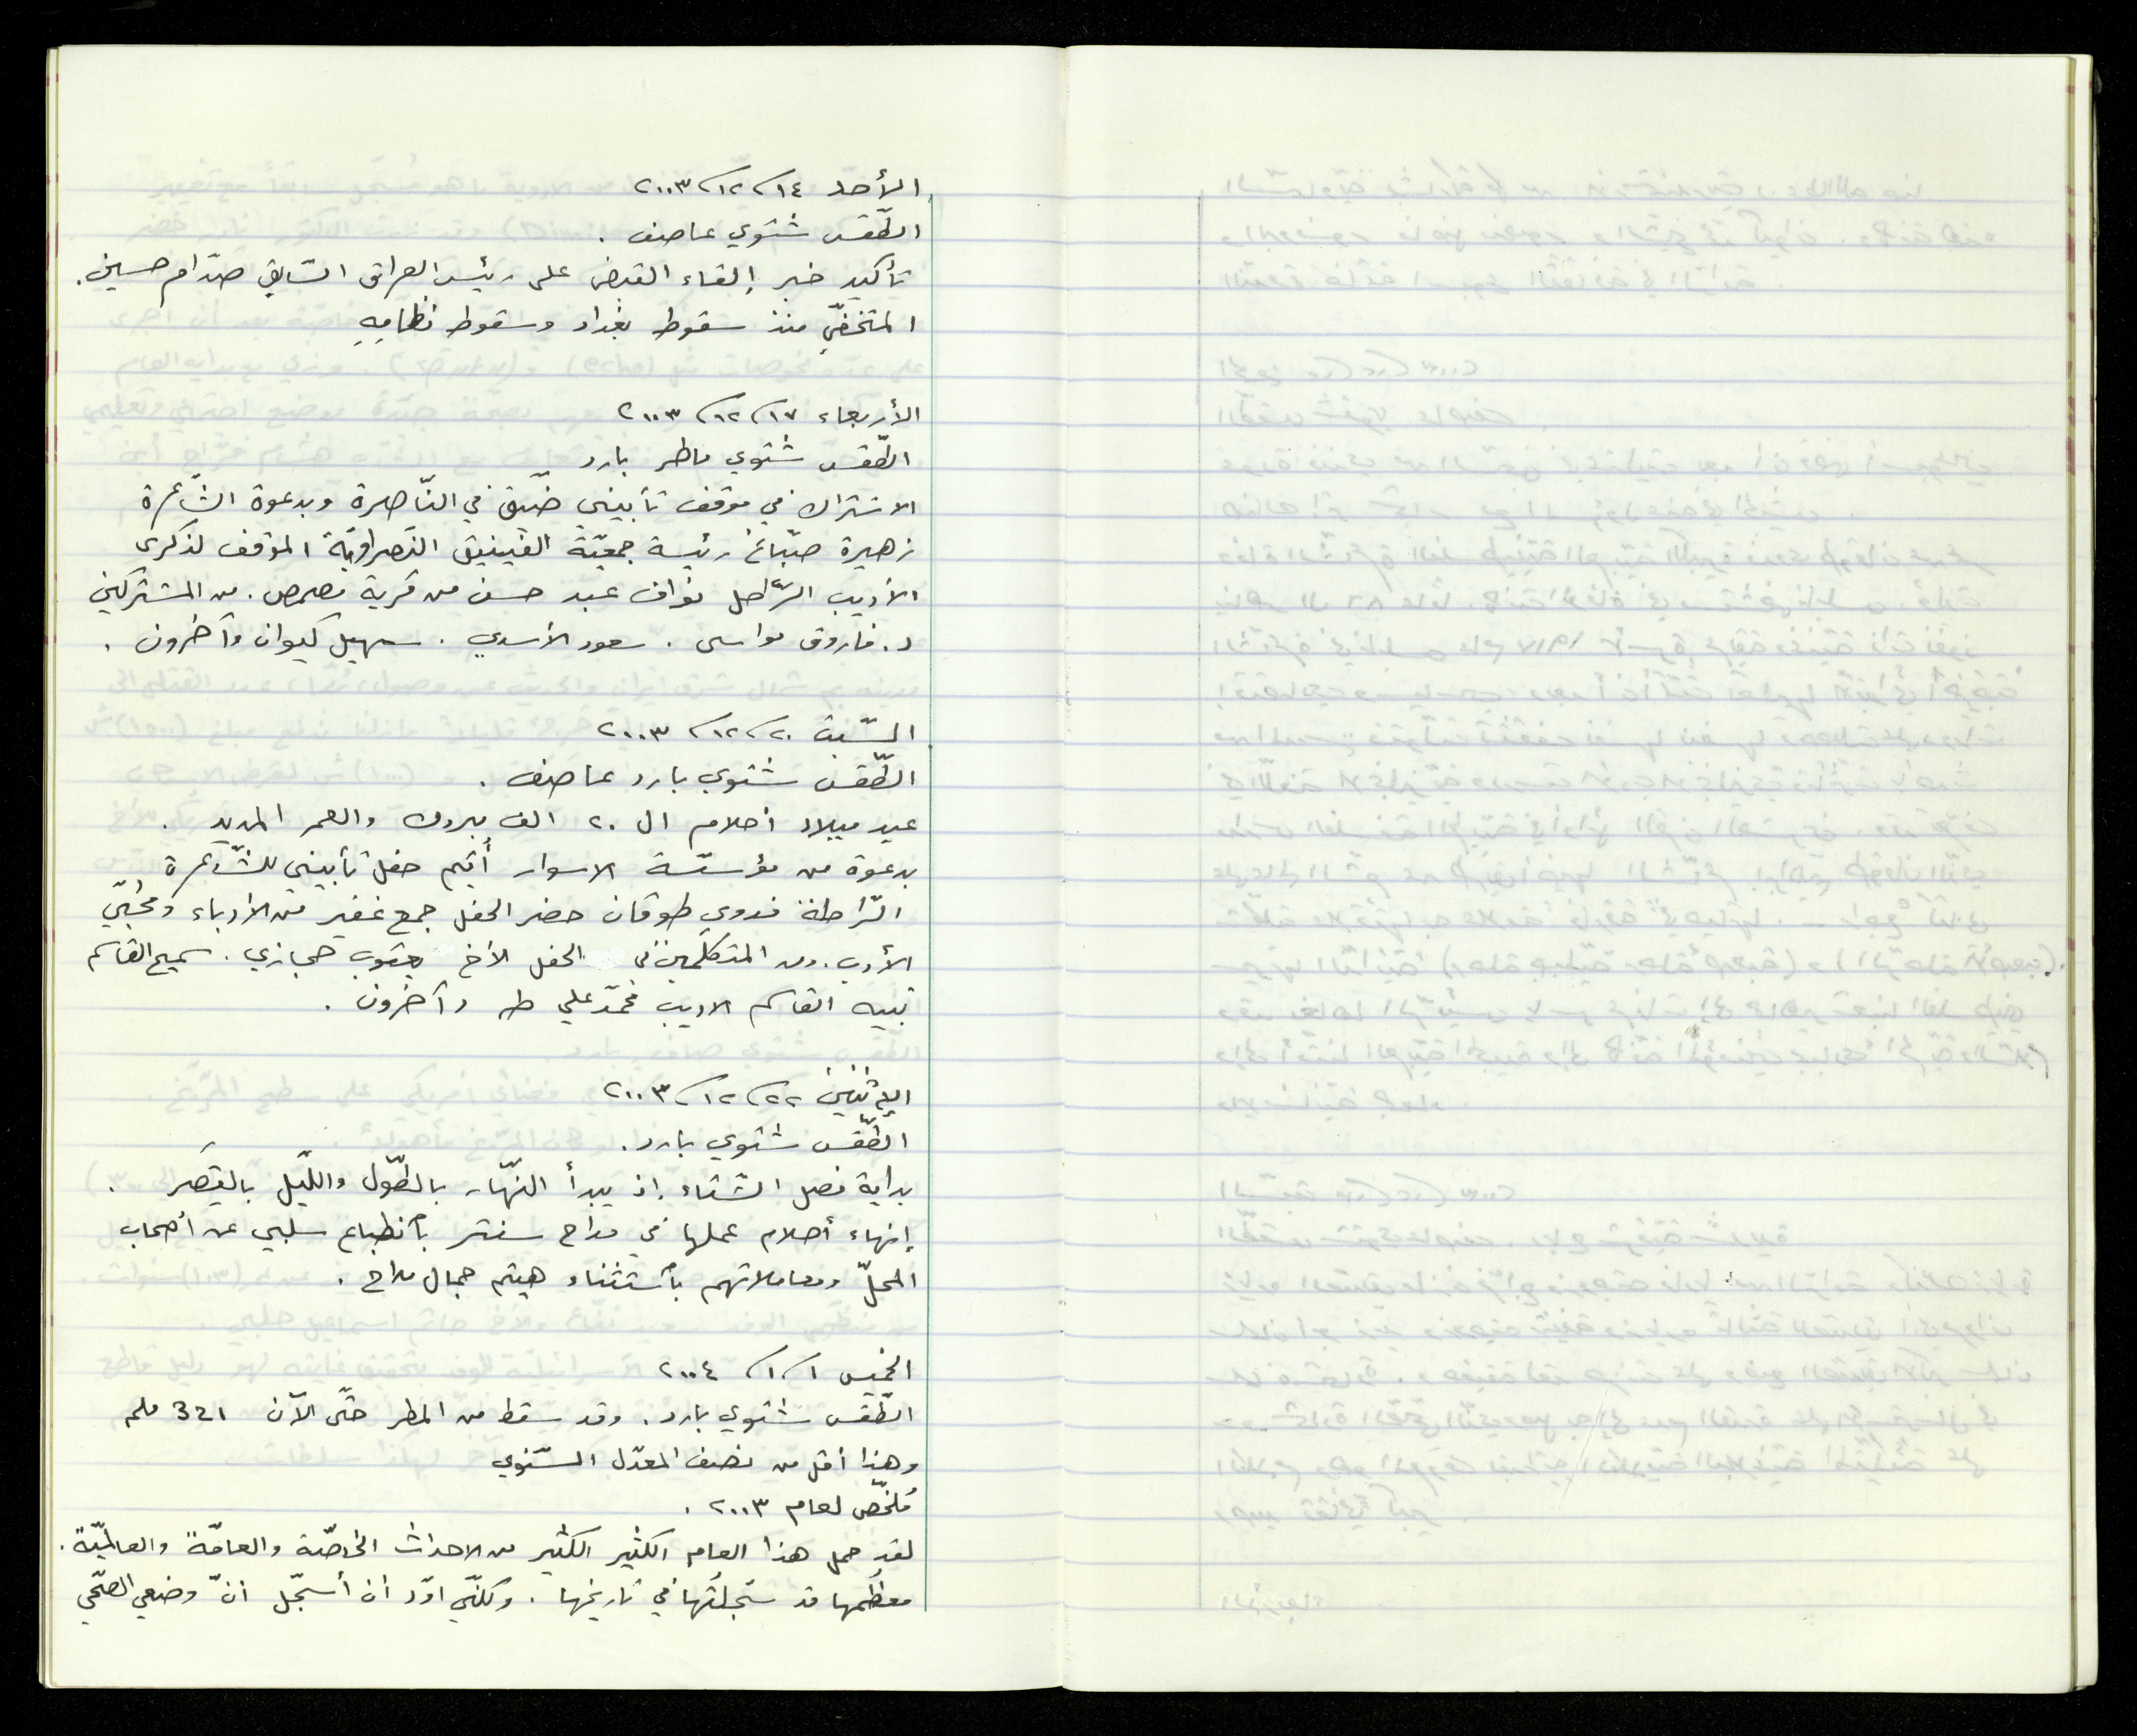 الأحد ١٤/١٢/٢٠٠٣
الطّقس شتوي عاصف .
تأكيد خبر إلقاء القبض على رئيس العراق السّابق صدّام حسين .
المتخفّي منذ سقوط بغداد وسقوط نظامِهِ
الأربعاء ١٧/١٢/٢٠٠٣
الطّقس شتوي ماطر بارد
الاشتراك في موقف تأبيني ضيّق في النّاصرة وبدعوة الشّاعرة
زهيرة صبّاغ رئيسة جمعيّة الفينيق النّصراويّة الموقف لذكرى
الأديب الرّاحل نواف عبد حسن من قرية مصمص . من المشتركين
د. فاروق مواسي . سعود الأسدي . سهيل كيوان وآخرون .
السّبت ٢٠/١٢/٢٠٠٣
الطّقس شتوي بارد عاصف .
عيد ميلاد أحلام ال ٢٠ الف مبروك والعمر المديد .
بدعوة من مؤسّسة الاسوار أُقيم حفل تأبيني للشّاعرة
الرّاحلة فدوى طوقان حضر الحفل جمع غفير من الأدباء ومحبّي
الأدب . ومن المتكلّمين في الحفل الأخ يعقوب حجازي . سميح القاسم
نبيه القاسم الاديب محمّد علي طه وآخرون .
الإثنين ٢٢/١٢/٢٠٠٣
الطّقس شتوي بارد .
بداية فصل الشّتاء إذ يبدأ النّهار بالطّول واللّيل بالقِصَر .
إنهاء أحلام عملها في مداح سنتر بأنطباع سلبي عن أصحاب
المحلّ ومعاملاتهم بأستثناء هيثم جمال مداح .
الخميس ١/١/٢٠٠٤
الطّقس شتوي بارد . وقد سقط من المطر حتّى الآن 321 ملم
وهذا أقل من نصف المعدّل السّنوي
مُلخّص لعام ٢٠٠٣ .
لقد حمل هذا العام الكثير الكثير من الاحداث الخاصّة والعامّة والعالميّة .
معظمها قد سَجّلتُها في تاريخها . ولكنّي اودّ ان أسجّل انّ وضعي الصحّي